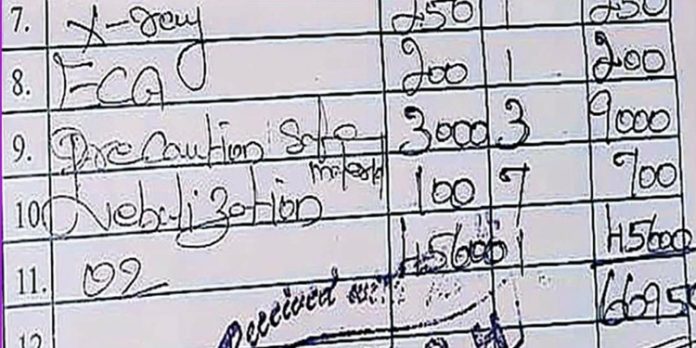 7. X-ray 250 1 250
8. ECG 200 1 200
9. Precaution Safe 3000 3 9000
material
10 Nebulization 100 7 700
11. O2 45600 1 45600
Received
6695
12